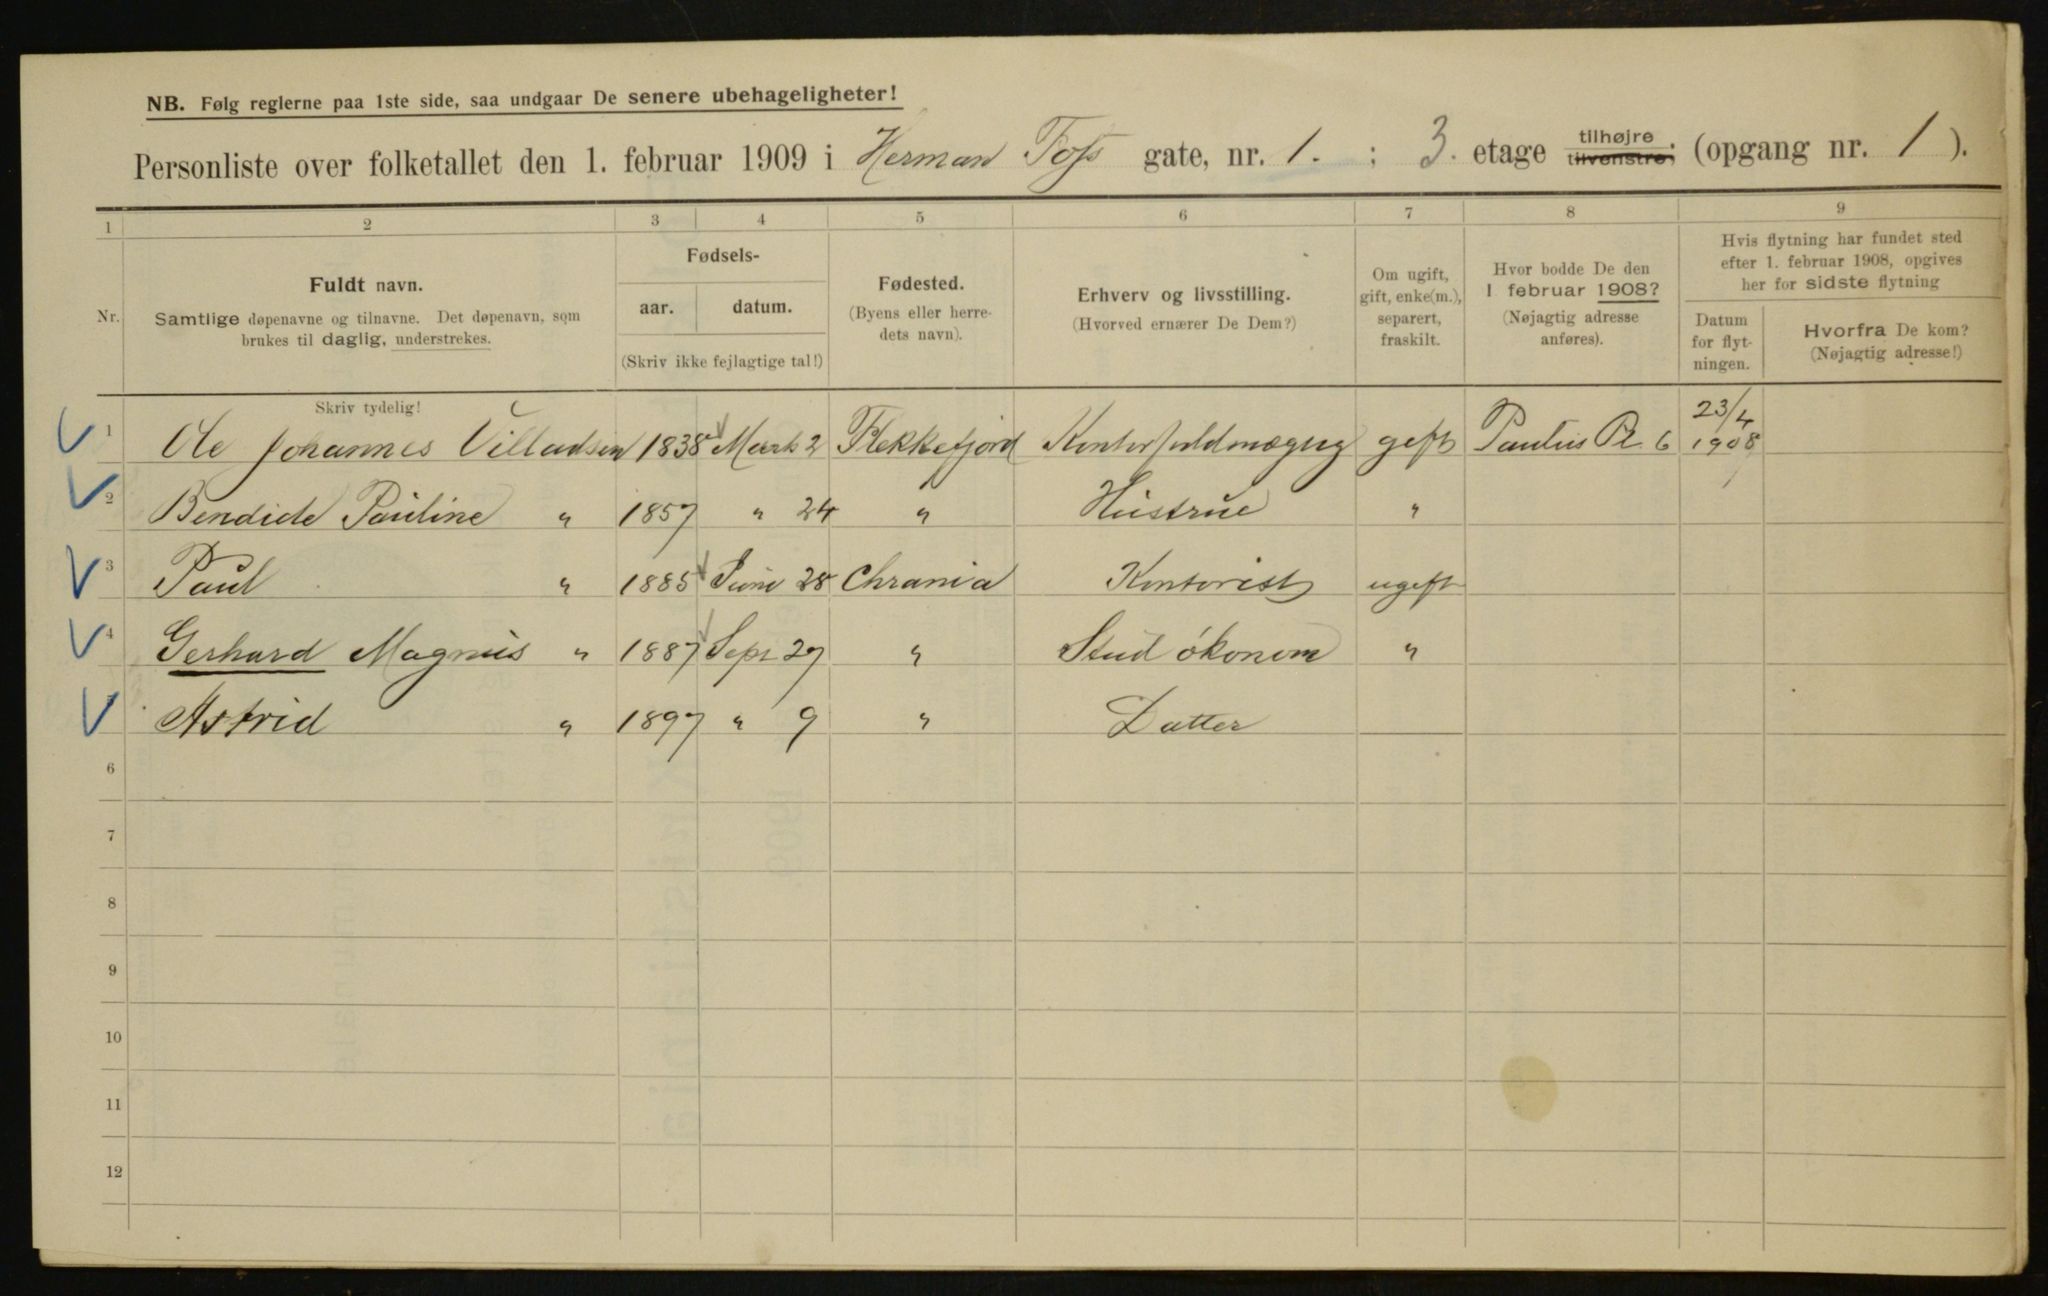 NB. Følg reglerne paa 1ste side, saa undgaar De senere ubehageligheter!
Personliste over folketallet den 1. februar 1909 i Herman Foss gate, nr. 1. ; 3. etage tilhøjre tilvenstre; (opgang nr. 1).
1 2 3 4 5 6 7 8 9
Nr.
Fuldt navn.
Samtlige døpenavne og tilnavne. Det døpenavn, som
brukes til daglig, understrekes.
Skriv tydelig!
Fødsels-
aar. datum.
(Skriv ikke fejlagtige tal!)
Fødested.
(Byens eller herre-
dets navn).
Erhverv og livsstilling.
(Hvorved ernærer De Dem?)
Om ugift,
gift, enke(m.),
separert,
fraskilt.
Hvor bodde De den
1 februar 1908?
(Nøjagtig adresse
anføres).
Hvis flytning har fundet sted
efter 1. februar 1908, opgives
her for sidste flytning
Datum
for flyt-
ningen.
Hvorfra De kom?
(Nøjagtig adresse!)
1 Ole Johannes Villadsen 1838 Marts 2 Flekkefjord Kontorfuldmægtig gift Paulus Pl. 6 23/4 1908
2 Bendicte Pauline " 1857 " 24 " Hustrue "
3 Paul " 1885 Juni 28 Chrania Kontorist ugift
4 Gerhard Magnus " 1887 Sept 27 " Stud økonom "
Astrid " 1897 " 9 " Datter
6
7
8
9
10
11
12